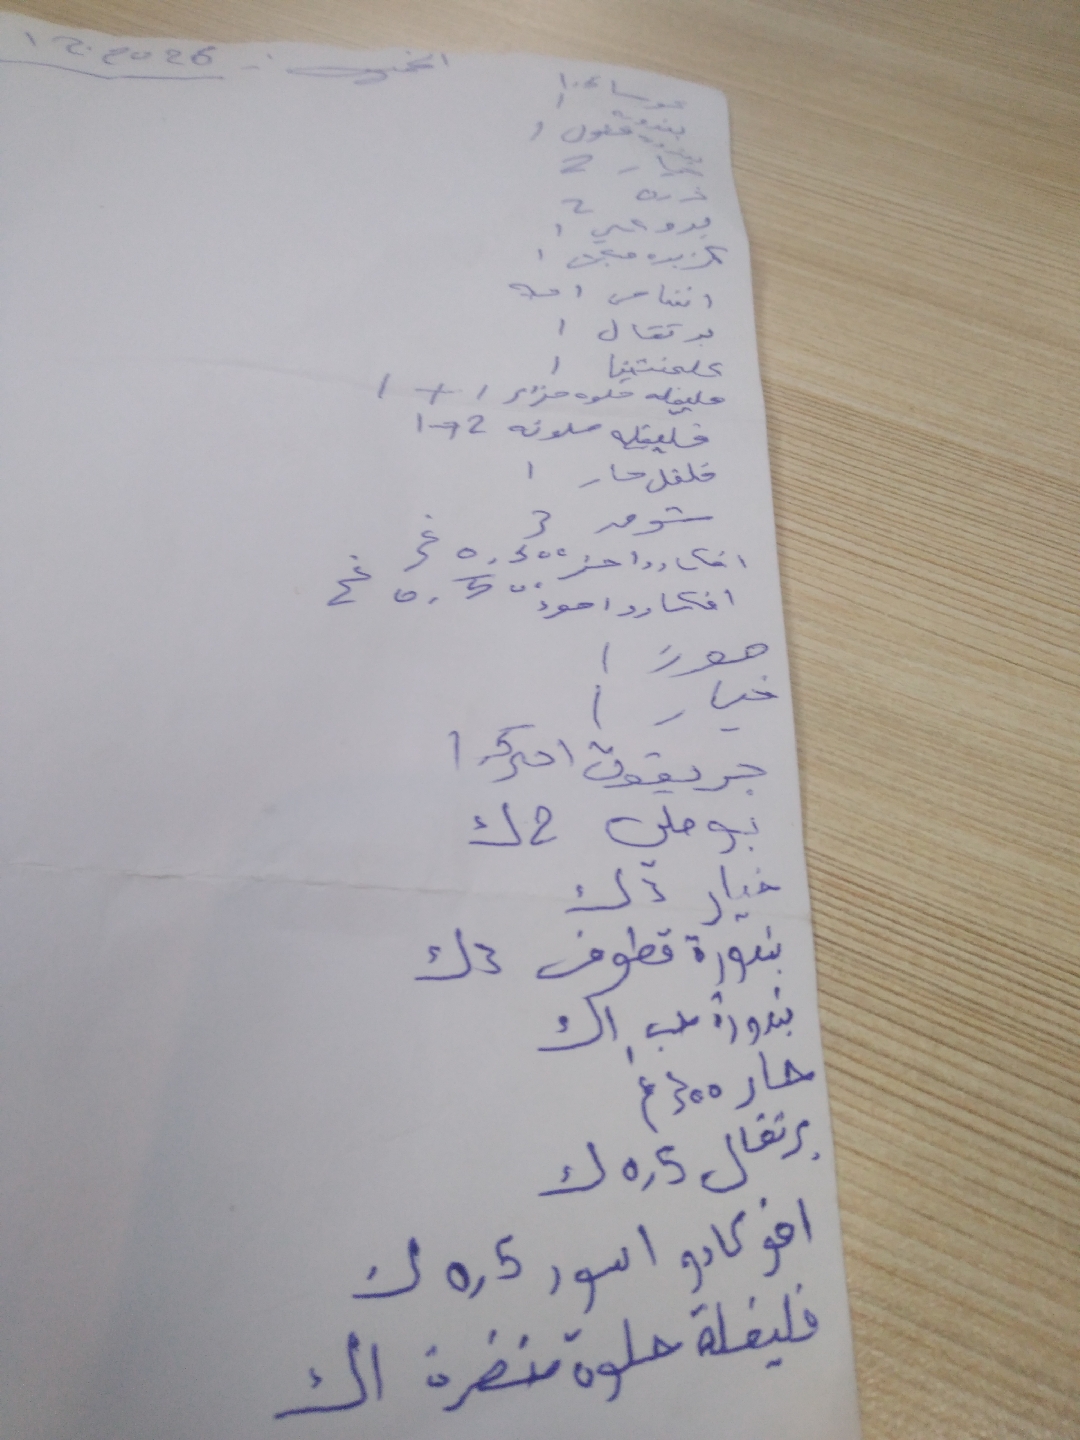 الخميس :- 1 2.2026
كوساية 1
بندورة فلول 1
خيار 2
ذره 2
بوملي 1
كزبره 1
انناس 1 حبه
برتقال 1
كلمنتينا 1
فليفله حلوه 1 + 1
فليفله ملونه 2→1
فلفل حار 1
شومر 3
افكادو اخضر 0.500 غ
افكادو اسود 0.500 غ
موز 1
خيار 1
جريفوت احمر 1
بوملي 2ك
خيار 3ك
بندورة قطوف 3ك
بندورة حب 1ك
حار 300غ
برتقال 0,5 ك
افوكادو اسود 0,5 ك
فليفلة حلوة خضرة 1ك